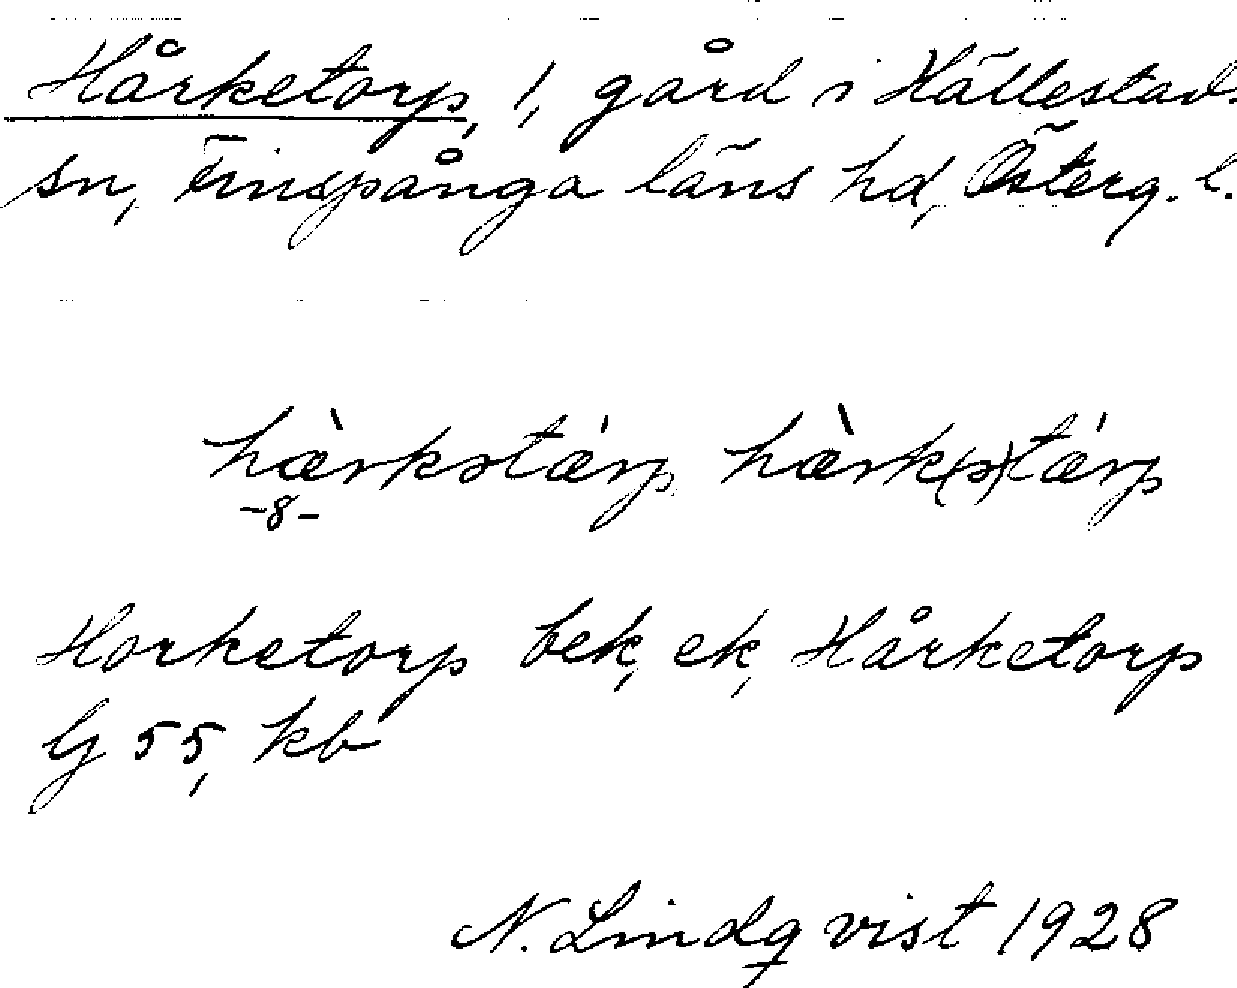 Hårketorp, 1, gård i Hällestads
sn, Finspånga läns hd, Österg. l.
hæ̀rkstǽrp hæ̀rk(s)tǽrp
-8-
Horketorp bek, ek, Hårketorp
G 55, kb
N. Lindqvist 1928